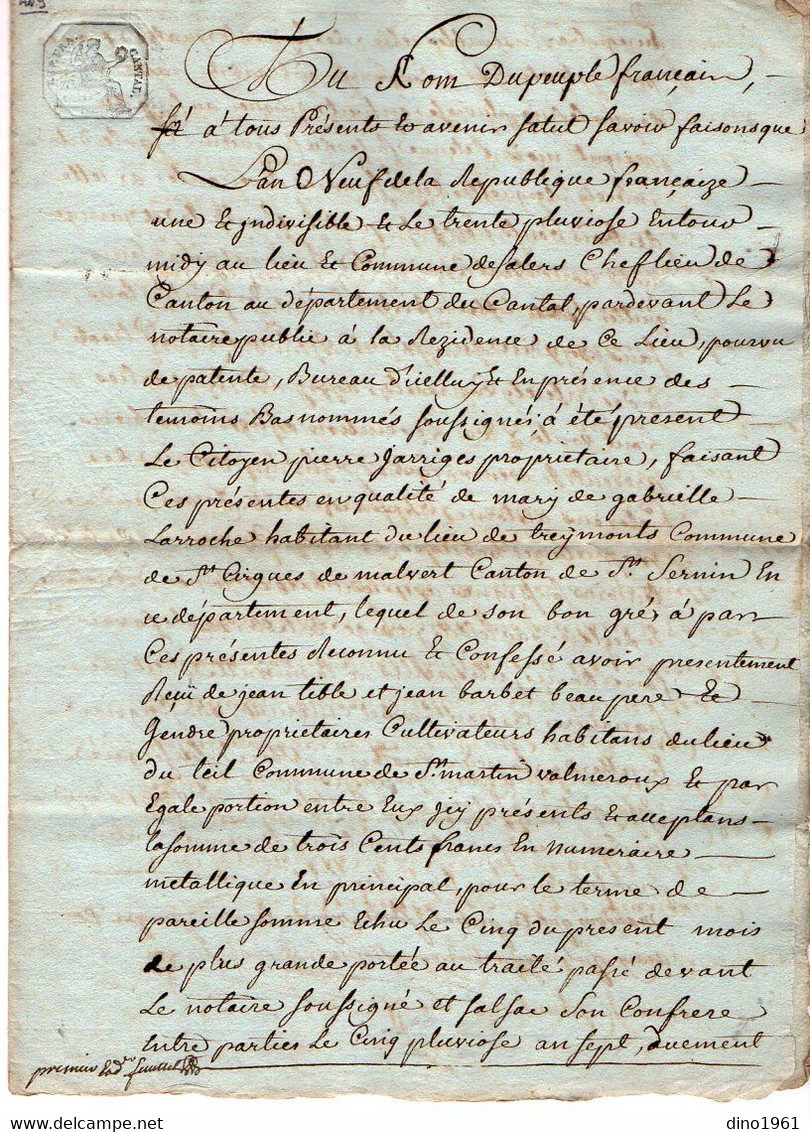 CANTAL.
Au Nom Dupeuple français,
à tous Présents et avenir salut savoir faisons que
L'an Neuf de la Republique françaize
une et jndivisible et Le trente pluviose Entour
midy au lieu Et Commune de salers Chef lieu de
Canton au département du Cantal, pardevant Le
notaire public à la Rezidence de Ce Lieu, pourvu
de patente, Bureau d'icelluy Et En présence des
temoins Bas nommés soussignés, à été present
Le Citoyen pierre Jarriges proprietaire, faisant
Ces présentes en qualité de mary de gabrielle
Larroche habitant du lieu de treymonts Commune
de St. Cirgues de malvert Canton de St. Sernin En
ce département, lequel de son bon gré, à par
Ces présentes Reconnu Et Confessé avoir presentement
Reçü de jean tible et jean barbet beau pere Et
Gendre proprietaires Cultivateurs habitans du lieu
du teil Commune de St. martin valmeroux Et par
Egale portion entre Eux jcy présents Et acceptans
la somme de trois Cents francs En numeraire
metallique En principal, pour le terme de
pareille somme Echu Le Cinq du present mois
de plus grande portée au traité passé devant
Le notaire soussigné et salsac son Confrere
Entre parties Le Cinq pluviose an sept, duement
premier
dino1961